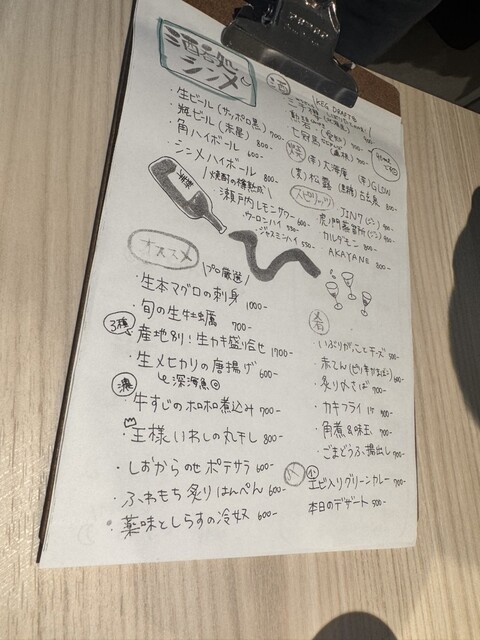 酒処
シンメ
生ビール (サッポロ黒) 700-
瓶ビール (赤星) 800-
角ハイボール 600-
シンメハイボール 800-
焼酎の樽熟成
瀬戸内レモンサワー 600-
ウーロンハイ 550-
ジャスミンハイ 550-
酒
KEG DRAFT
七冠馬
大海庵
松露
GLOW
スピリッツ
JIN7 (ジン)
虎ノ門蒸留所 (ジン) 900-
カルダモン 800-
AKAYANE 800-
オススメ
プロ厳選
生本マグロの刺身 1000-
旬の生牡蠣 700-
3種
産地別!生カキ盛り合せ 1700-
生メヒカリの唐揚げ 600-
深海魚
濃
牛すじのホロホロ煮込み 700-
王様いわしの丸干し 800-
しおからのせポテサラ 600-
ふわもち炙りはんぺん 600-
薬味としらすの冷奴 600-
肴
いぶりがっことチーズ 500-
赤てん (ピリ辛かまぼこ) 600-
炙りしめさば 700-
カキフライ 1ヶ 400-
角煮&味玉 700-
ごまどうふ揚出し 700-
〆
小
エビ入りグリーンカレー 700-
本日のデザート 500-